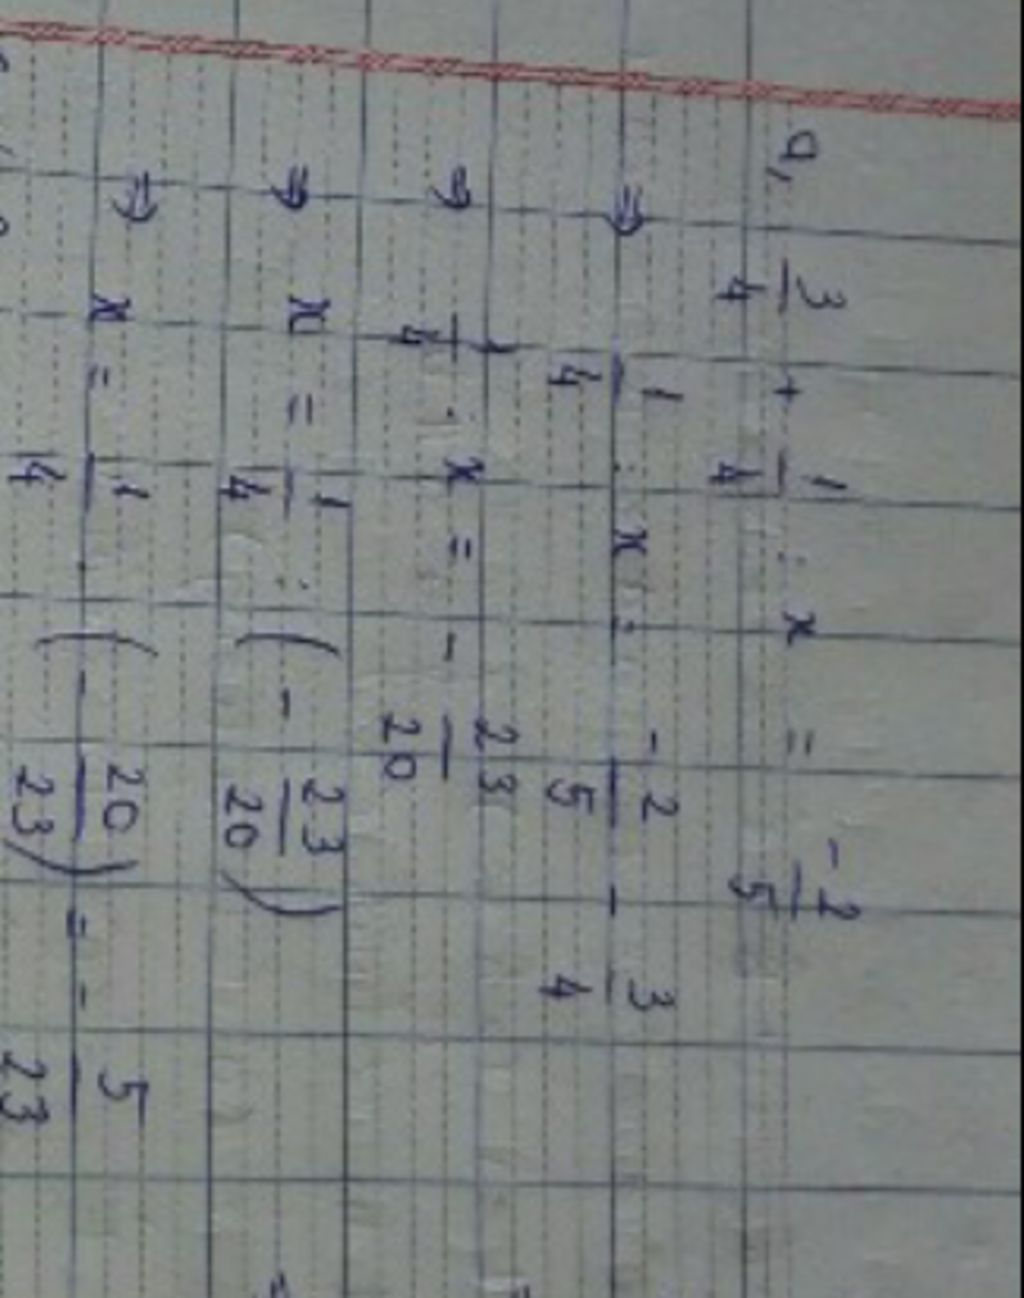 a, 3/4 + 1/4 : x = -2/5
⇒ 1/4 : x : -2/5 - 3/4
⇒ 1/4 : x = - 23/20
⇒ x = 1/4 : (- 23/20)
⇒ x = 1/4 . (- 20/23) = - 5/23